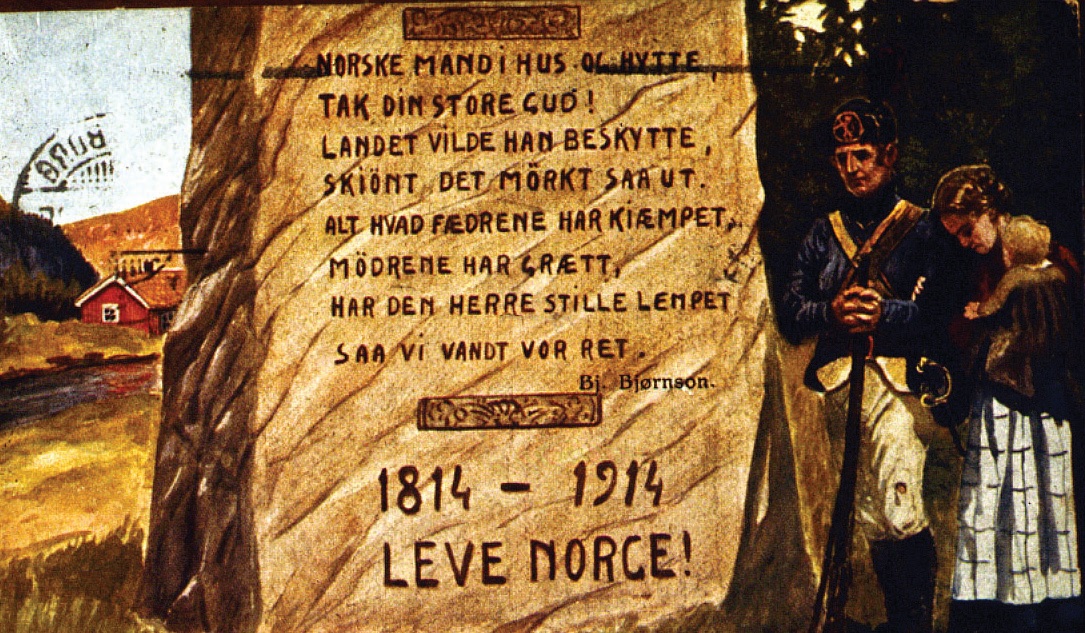 NORSKE MAND I HUS OG HYTTE,
TAK DIN STORE GUD!
LANDET VILDE HAN BESKYTTE,
SKIÖNT DET MÖRKT SAA UT.
ALT HVAD FÆDRENE HAR KIÆMPET,
MÖDRENE HAR GRÆTT,
HAR DEN HERRE STILLE LEMPET
SAA VI VANDT VOR RET.
Bj. Bjørnson.
1814 – 1914
LEVE NORGE!